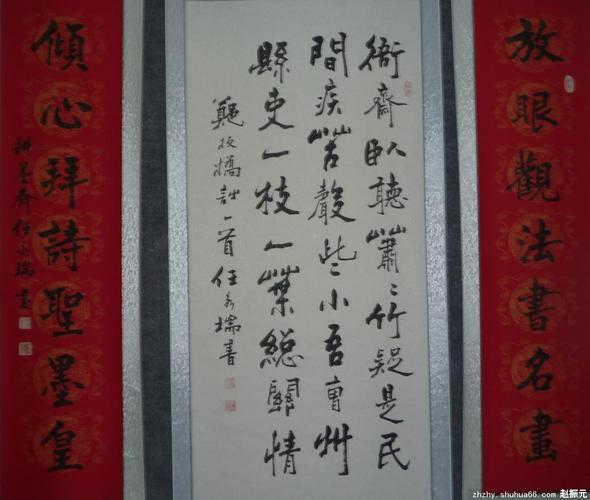 放眼觀法書名畫
衙齋臥聽蕭〻竹疑是民
間疾苦聲些小吾曹州
縣吏一枝一葉總關情
鄭板橋詩一首 任永瑞書
傾心拜詩聖墨皇
耕墨齋任永瑞書
zhzhy.shuhua66.com 赵振元